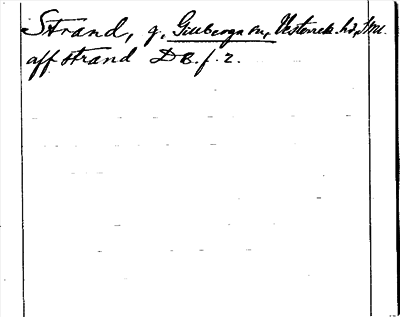 Strand, g, Gillberga sn, Västerrek. hd, Sml.
aff strand DB. f. 2.